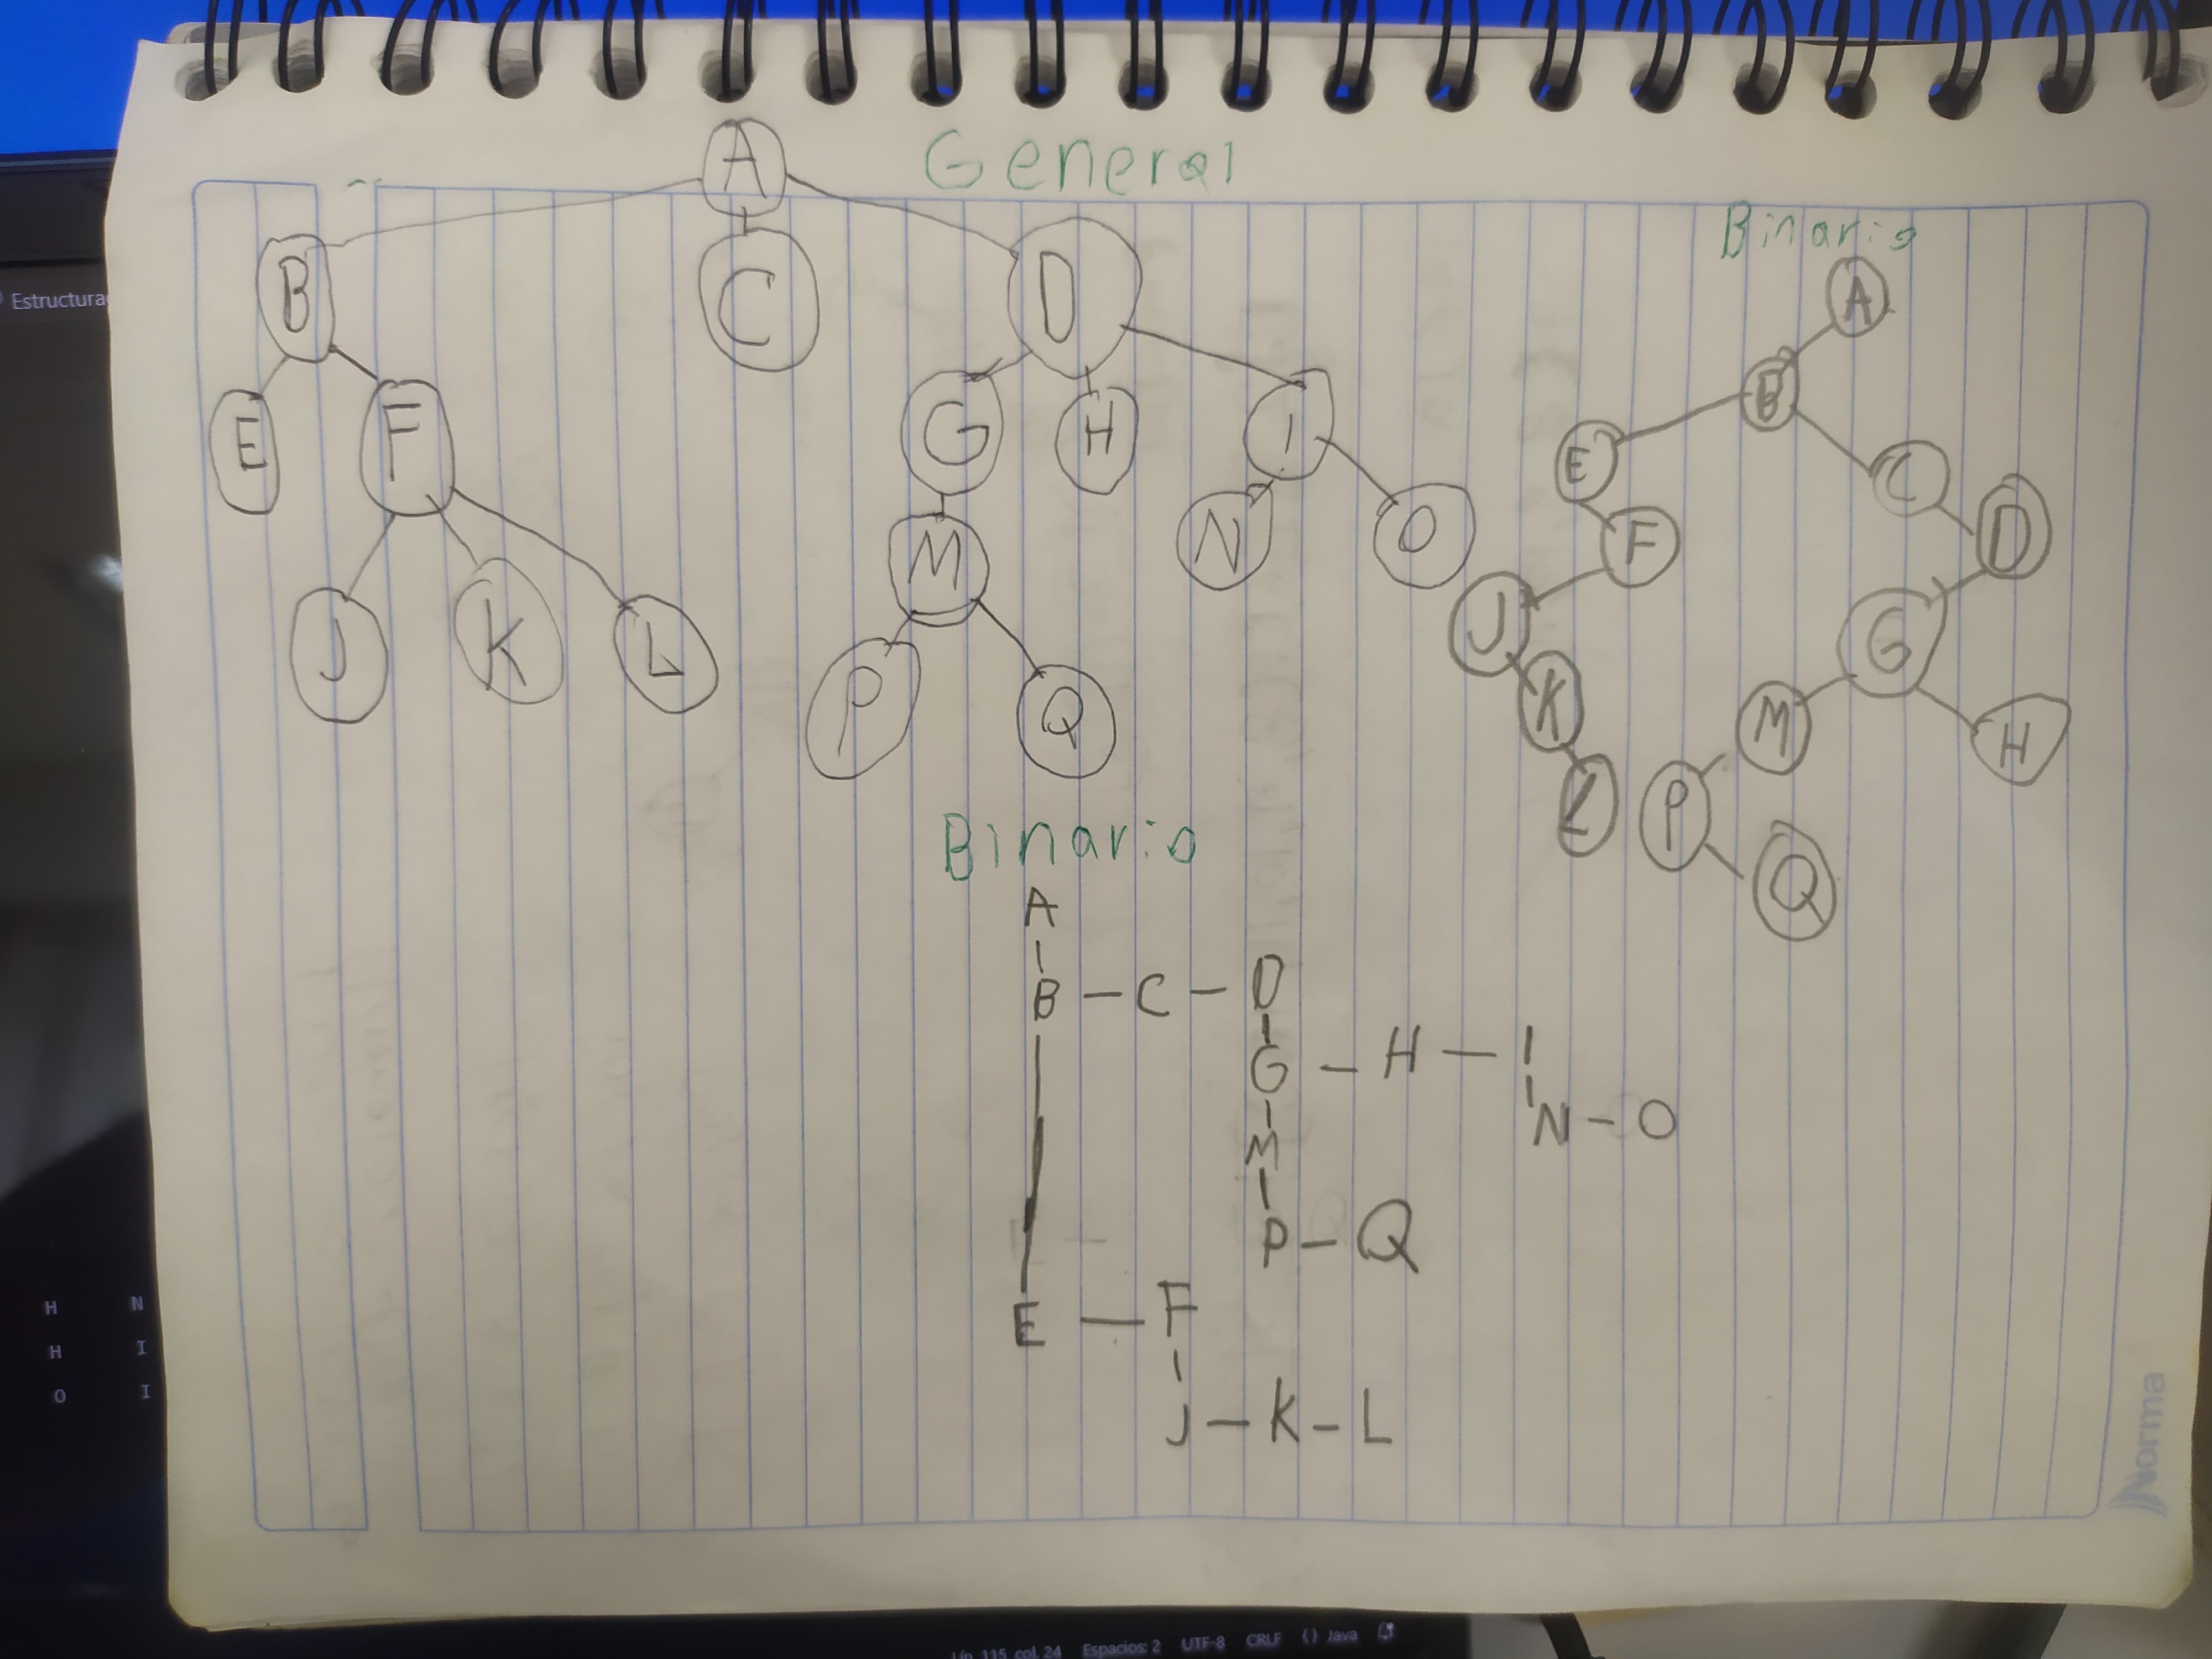 General
A
B C D
E F G H I
J K L M N O
P Q
Binario
A
B
E C
F D
J G
K M H
L P
Q
Binario
A
B - C - D
G - H - I
N - O
M
P - Q
E - F
J - K - L
Norma
Estructura
H N
H I
O I
Lín. 115, col. 24 Espacios: 2 UTF-8 CRLF {} Java